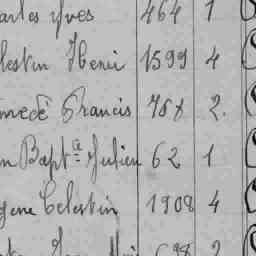 arles Yves 464 1
lestin Henri 1599 4
médé Francis 758 2.
n Bapt.te Julien 62 1
gene Celestin 1908 4
698 2